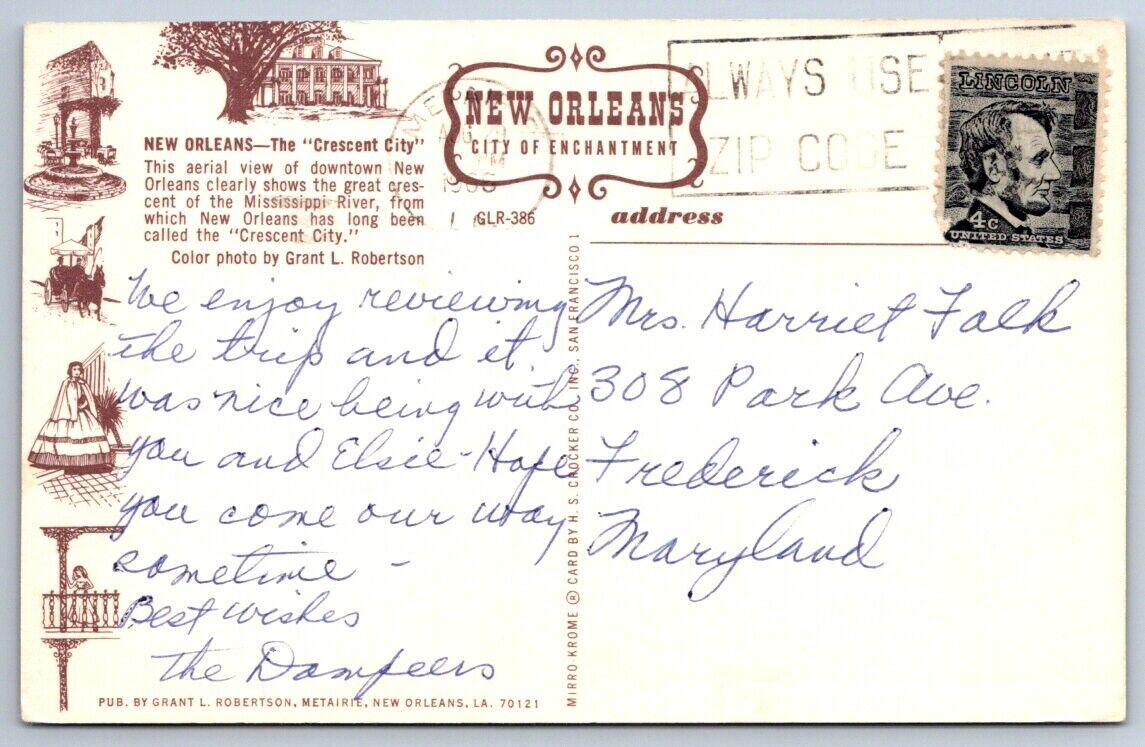 NEW ORLEANS
CITY OF ENCHANTMENT
ALWAYS USE
ZIP CODE
LINCOLN
4c
UNITED STATES
NEW ORLEANS—The "Crescent City"
This aerial view of downtown New
Orleans clearly shows the great cres-
cent of the Mississippi River, from
which New Orleans has long been
called the "Crescent City."
Color photo by Grant L. Robertson
GLR-386
address
We enjoy reviewing
the trip and it
was nice being with
you and Elsie - Hope
you come our way
sometime -
Best wishes
The Dampeers
Mrs. Harriet Falk
308 Park Ave.
Frederick
Maryland
MIRRO-KROME ® CARD BY H. S. CROCKER CO., INC., SAN FRANCISCO 1
PUB. BY GRANT L. ROBERTSON, METAIRIE, NEW ORLEANS, LA. 70121